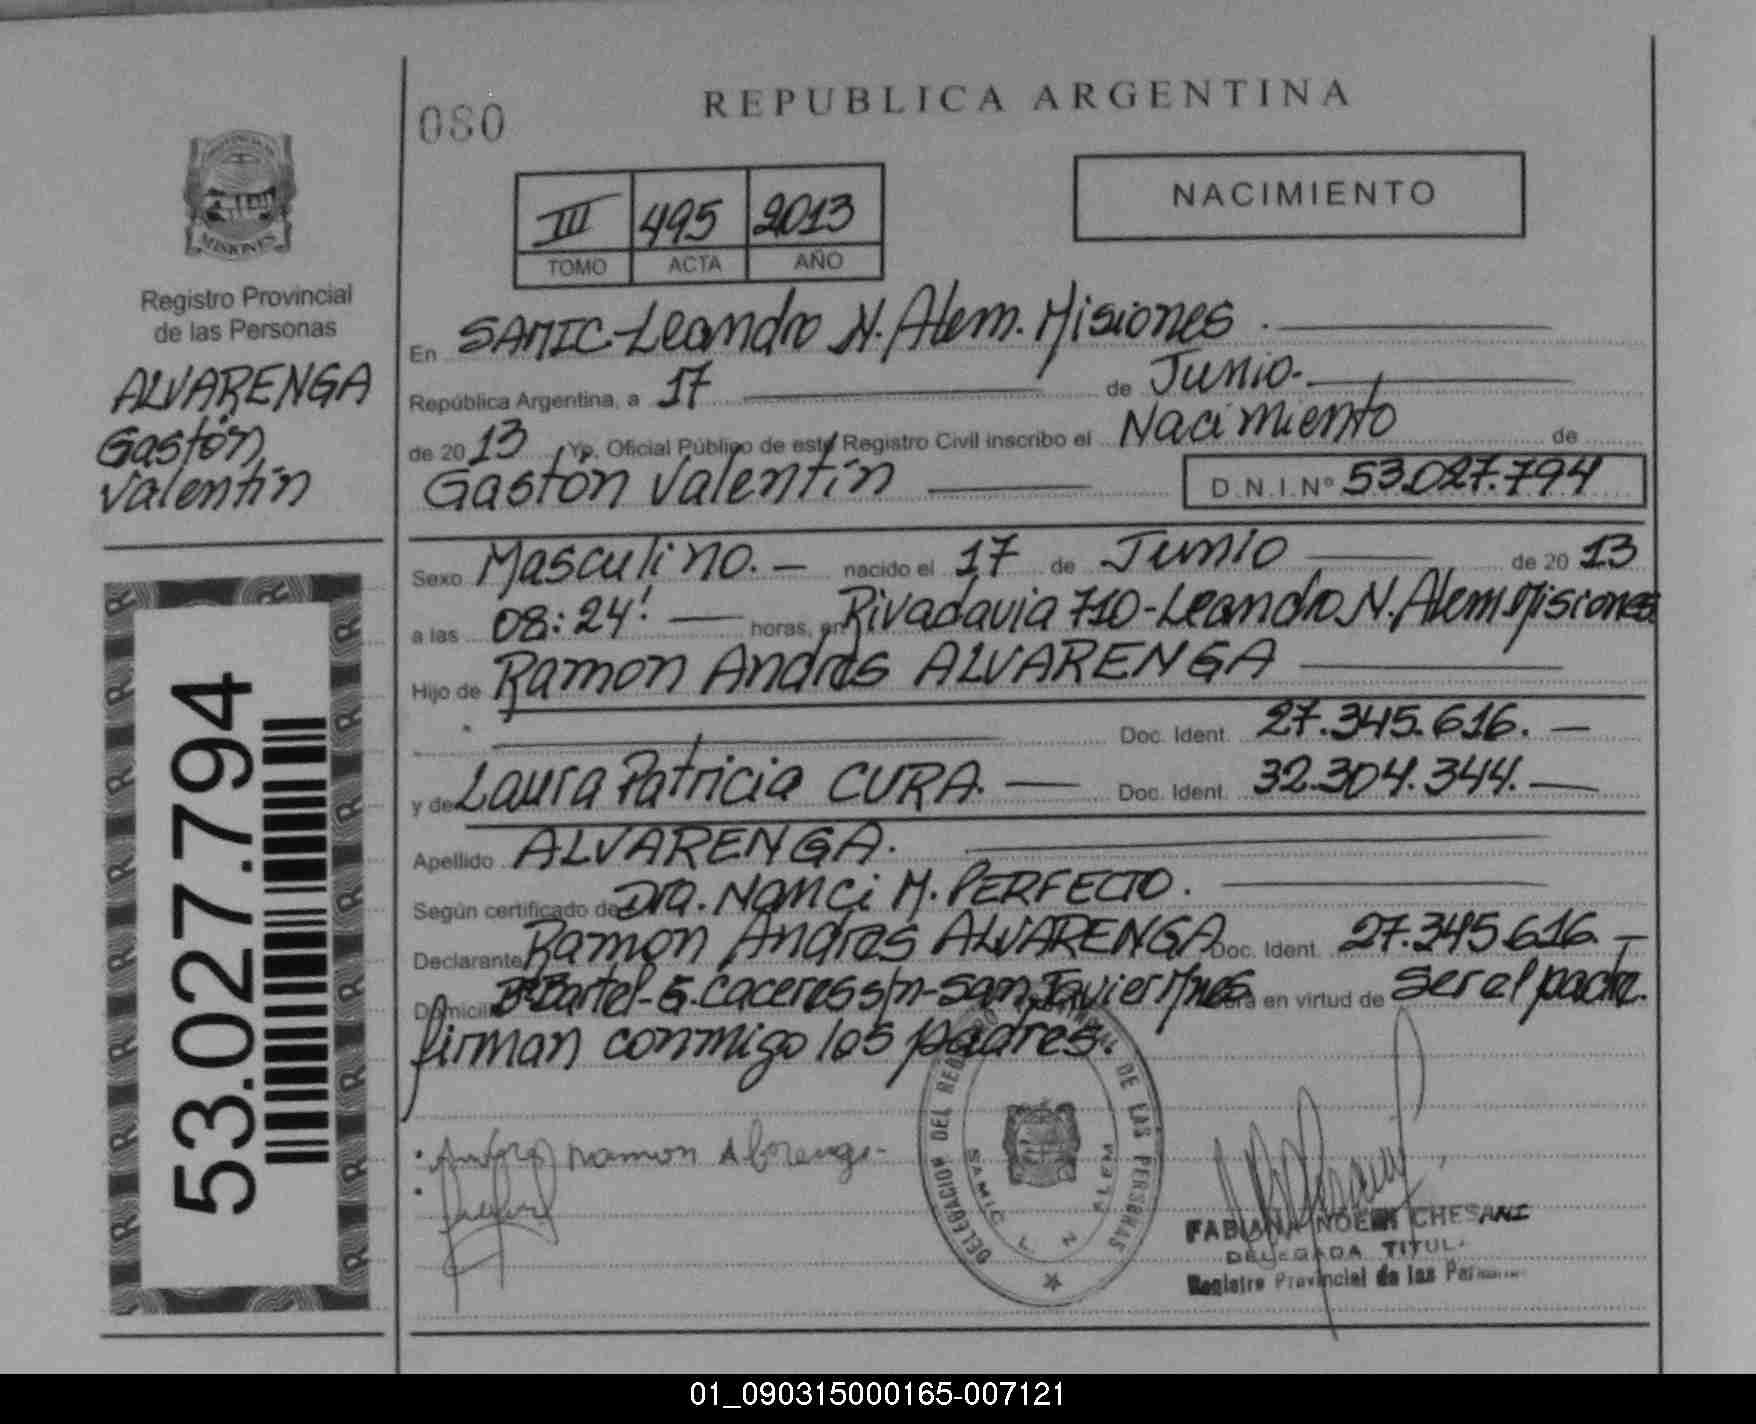 080
REPUBLICA ARGENTINA
NACIMIENTO
III 495 2013
TOMO ACTA AÑO
MISIONES
Registro Provincial
de las Personas
ALVARENGA
Gastón
Valentín
53.027.794
En SAMIC-Leandro N. Alem. Misiones.
República Argentina, a 17 de Junio.-
de 2013, Yo, Oficial Público de este Registro Civil inscribo el Nacimiento de
Gastón Valentín D.N.I.Nº 53.027.794
Sexo Masculino.- nacido el 17 de Junio de 2013
a las 08:24' horas, en Rivadavia 710-Leandro N. Alem Misiones
Hijo de Ramon Andrés ALVARENGA
Doc. Ident. 27.345.616.-
y de Laura Patricia CURA. Doc. Ident. 32.304.344.-
Apellido ALVARENGA.
Según certificado de Dra. Nanci M. PERFECTO.
Declarante Ramon Andres ALVARENGA Doc. Ident. 27.345.616.-
Domicilio Bº Bartel-G. Caceres s/n-San Javier Mnes. en virtud de ser el padre.
firman conmigo los padres.
Ramon
DELEGACION DEL DE LAS PERSONAS
SAMIC L N ALEM
FABIANA NOEMI CHESANI
DELEGADA TITUL
Registro Provincial de las
01_090315000165-007121